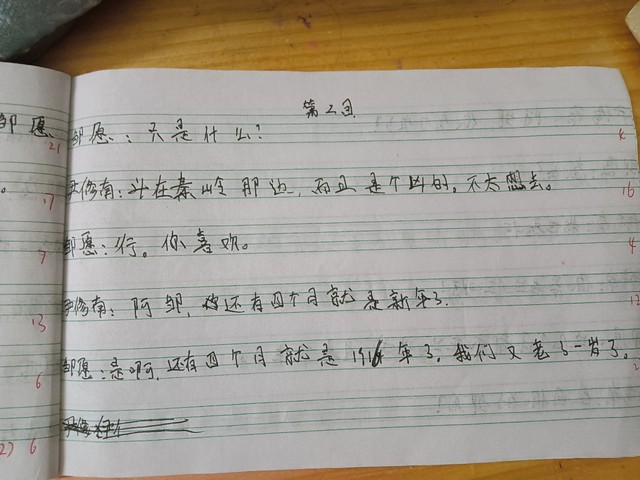 第2回
邹愿
邹愿：只是什么？
21
4
尹修有：斗在秦岭那边，而且是个凶的。不太想去。
17
16
邹愿：行。你喜欢。
7
4
尹修有：阿邹，还有四个月就是新年了。
13
12
邹愿：是啊，还有四个月就是1916年了，我们又老了一岁了。
6
2
6